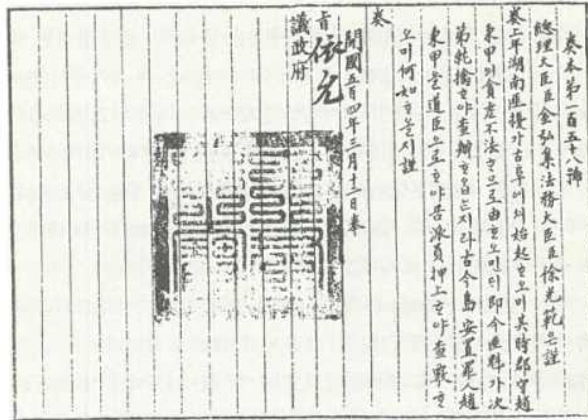 奏本 第一百五十八號
總理大臣臣金弘集法務大臣臣徐光範은謹
奏上年湖南匪擾가古阜에셔始起ᄒᆞ오미其時郡守趙
秉甲의貪虐不法ᄒᆞ므로由ᄒᆞ오민ᄃᆡ即今匪魁가次
第就擒ᄒᆞ야査辦ᄒᆞ옵ᄂᆞᆫ지라古今島安置罪人趙
秉甲을道臣으로ᄒᆞ야곰派員押上ᄒᆞ야査覈ᄒᆞ
오미何如ᄒᆞ올지謹
奏
開國五百四年三月十二日奏
旨依允
議政府